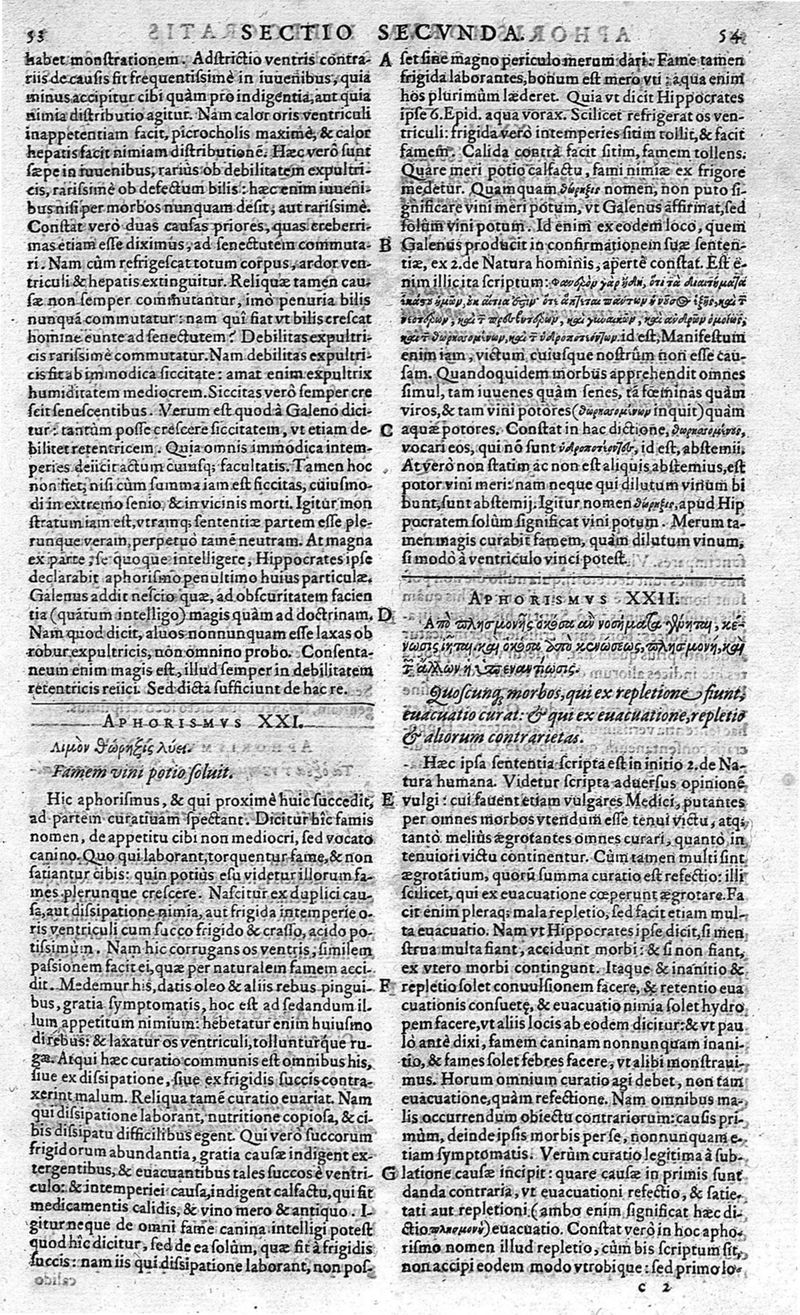 53 SECTIO SECVNDA. 54
habet monstrationem. Adstrictio ventris contra-
riis de causis fit frequentissimè in iuuenibus, quia
minus accipitur cibi quàm pro indigentia, aut quia
nimia distributio agitur. Nam calor oris ventriculi
inappetentiam facit, picrocholis maximè, & calor
hepatis facit nimiam distributionē. Hæc verò sunt
sæpe in iuuenibus, rarius ob debilitatem expultri-
cis, rarissimè ob defectum bilis: hæc enim iuueni-
bus nisi per morbos nunquam desit, aut rarissimè.
Constat verò duas causas priores, quas creberri-
mas etiam esse diximus, ad senectutem commuta-
ri. Nam cùm refrigescat totum corpus, ardor ven-
triculi & hepatis extinguitur. Reliquæ tamen cau-
sæ non semper commutantur, imò penuria bilis
nunquā commutatur: nam quî fiat vt bilis crescat
homine eunte ad senectutem? Debilitas expultri-
cis rarissimè commutatur. Nam debilitas expultri-
cis fit ab immodica siccitate: amat enim expultrix
humiditatem mediocrem. Siccitas verò semper cre
scit senescentibus. Verum est quod à Galeno dici-
tur: tantùm posse crescere siccitatem, vt etiam de-
bilitet retentricem. Quia omnis immodica intem-
peries deiicit actum cuiusq; facultatis. Tamen hoc
non fiet, nisi cùm summa iam est siccitas, cuiusmo-
di in extremo senio, & in vicinis morti. Igitur mon
stratum iam est, vtramq; sententiæ partem esse ple-
runque veram, perpetuò tamē neutram. At magna
ex parte, se quoque intelligere, Hippocrates ipse
declarabit aphorismo penultimo huius particulæ.
Galenus addit nescio quæ, ad obscuritatem facien
tia (quātum intelligo) magis quàm ad doctrinam.
Nam quod dicit, aluos nonnunquam esse laxas ob
robur expultricis, non omnino probo. Consenta-
neum enim magis est, illud semper in debilitatem
retentricis reiici. Sed dicta sufficiunt de hac re.
APHORISMVS XXI.
Λιμὸν θώρηξις λύει.
Famem vini potio soluit.
Hic aphorismus, & qui proximè huic succedit,
ad partem curatiuam spectant. Dicitur hîc famis
nomen, de appetitu cibi non mediocri, sed vocato
canino. Quo qui laborant, torquentur fame, & non
satiantur cibis: quin potiùs esu videtur illorum fa-
mes plerunque crescere. Nascitur ex duplici cau-
sa, aut dissipatione nimia, aut frigida intemperie o-
ris ventriculi cum succo frigido & crasso, acido po-
tissimùm. Nam hic corrugans os ventris, similem
passionem facit ei, quæ per naturalem famem acci-
dit. Medemur his, datis oleo & aliis rebus pingui-
bus, gratia symptomatis, hoc est ad sedandum il-
lum appetitum nimium: hebetatur enim huiusmo
di rebus: & laxatur os ventriculi, tollunturque ru-
gæ. Atqui hæc curatio communis est omnibus his,
siue ex dissipatione, siue ex frigidis succis contra-
xerint malum. Reliqua tamē curatio euariat. Nam
qui dissipatione laborant, nutritione copiosa, & ci-
bis dissipatu difficilibus egent. Qui verò succorum
frigidorum abundantia, gratia causæ indigent ex-
tergentibus, & euacuantibus tales succos è ventri-
culo: & intemperiei causa, indigent calfactu, qui fit
medicamentis calidis, & vino mero & antiquo. I-
gitur neque de omni fame canina intelligi potest
quod hîc dicitur, sed de ea solùm, quæ fit à frigidis
succis: nam iis qui dissipatione laborant, non pos-
A set sine magno periculo merum dari: Fame tamen
frigida laborantes, bonum est mero vti: aqua enim
hos plurimùm læderet. Quia vt dicit Hippocrates
ipse 6. Epid. aqua vorax. Scilicet refrigerat os ven-
triculi: frigida verò intemperies sitim tollit, & facit
famem. Calida contrà facit sitim, famem tollens.
Quare meri potio calfactu, fami nimiæ ex frigore
medetur. Quamquam θώρηξις nomen, non puto si-
gnificare vini meri potum, vt Galenus affirmat, sed
solùm vini potum. Id enim ex eodem loco, quem
B Galenus producit in confirmationem suæ senten-
tiæ, ex 2. de Natura hominis, apertè constat. Est e-
nim illic ita scriptum:
id est, Manifestum
enim iam, victum cuiusque nostrûm non esse cau-
sam. Quandoquidem morbus apprehendit omnes
simul, tam iuuenes quàm senes, tā fœminas quàm
viros, & tam vini potores (θωρησσομένων inquit) quàm
C aquæ potores. Constat in hac dictione,
vocari eos, qui nō sunt id est, abstemii.
At verò non statim ac non est aliquis abstemius, est
potor vini meri: nam neque qui dilutum vinum bi
bunt, sunt abstemij. Igitur nomen θώρηξις, apud Hip
pocratem solùm significat vini potum. Merum ta-
men magis curabit famem, quàm dilutum vinum,
si modò à ventriculo vinci potest.
APHORISMVS XXII.
D Ἀπὸ πλησμονῆς ὁκόσα ἂν νοσήματα γένηται, κέ-
νωσις ἰῆται, καὶ ὁκόσα ἀπὸ κενώσεως, πλησμονή, καὶ
τ ἄλλων ἡ ὑπεναντίωσις.
Quoscunq; morbos, qui ex repletione fiunt,
euacuatio curat: & qui ex euacuatione, repletio
& aliorum contrarietas.
Hæc ipsa sententia scripta est in initio 2. de Na-
tura humana. Videtur scripta aduersus opinionē
E vulgi: cui fauent etiam vulgares Medici, putantes
per omnes morbos vtendum esse tenui victu, atq;
tantò meliùs ægrotantes omnes curari, quantò in
tenuiori victu continentur. Cùm tamen multi sint
ægrotātium, quorū summa curatio est refectio: illi
scilicet, qui ex euacuatione cœperunt ægrotare. Fa
cit enim pleraq; mala repletio, sed facit etiam mul-
ta euacuatio. Nam vt Hippocrates ipse dicit, si men
strua multa fiant, accidunt morbi: & si non fiant,
ex vtero morbi contingunt. Itaque & inanitio &
F repletio solet conuulsionem facere, & retentio eua
cuationis consuetę, & euacuatio nimia solet hydro
pem facere, vt aliis locis ab eodem dicitur: & vt pau
lò antè dixi, famem caninam nonnunquam inani-
tio, & fames solet febres facere, vt alibi monstraui-
mus. Horum omnium curatio agi debet, non tam
euacuatione, quàm refectione. Nam omnibus ma-
lis occurrendum obiectu contrariorum: causis pri-
mùm, deinde ipsis morbis per se, nonnunquam e-
tiam symptomatis. Verùm curatio legitima à sub-
G latione causæ incipit: quare causæ in primis sunt
danda contraria, vt euacuationi refectio, & satie-
tati aut repletioni (ambo enim significat hæc di-
ctio πλησμονή) euacuatio. Constat verò in hoc apho-
rismo nomen illud repletio, cùm bis scriptum sit,
non accipi eodem modo vtrobique: sed primo lo-
c 2